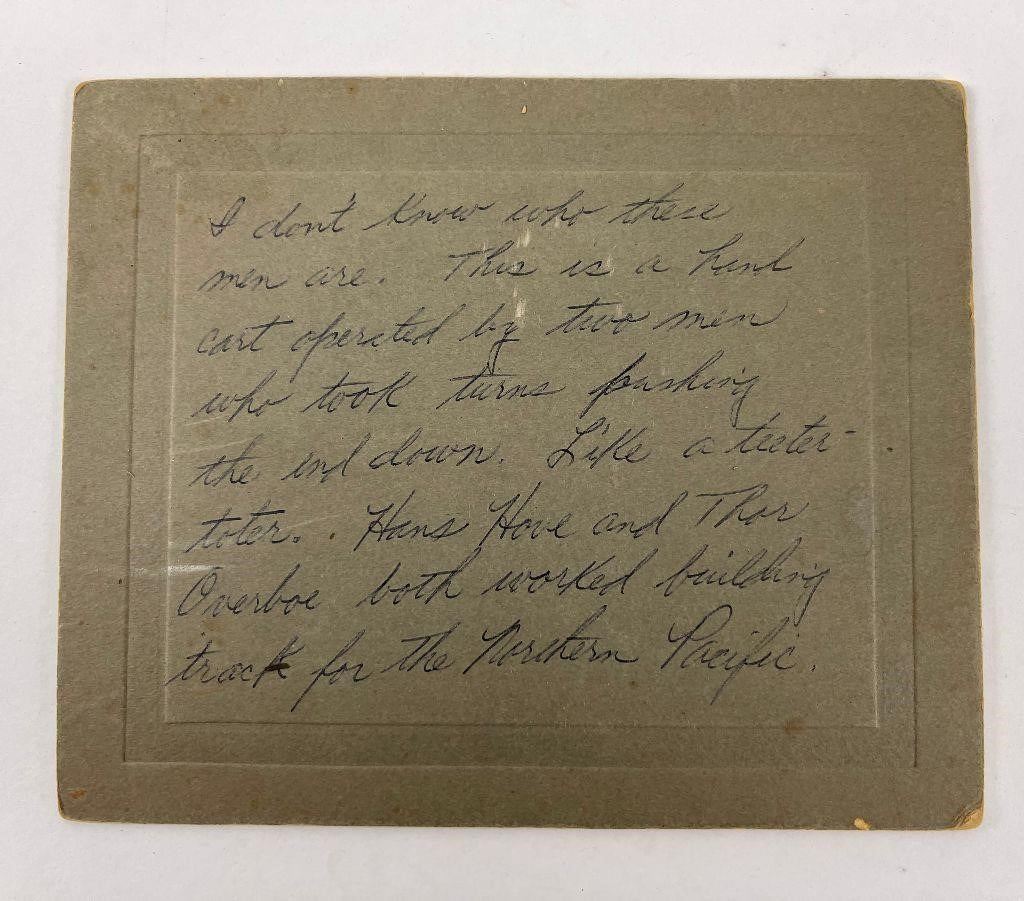 I don't know who these
men are. This is a hand
cart operated by two men
who took turns pushing
the end down. Like a teeter-
toter. . Hans Hove and Thor
Overboe both worked building
track for the Northern Pacific.